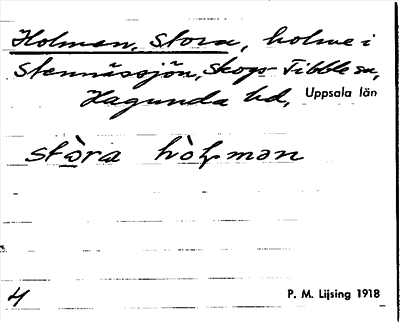 Holmen, Stora, holme i
Stennässjön, Skogs-Tibble sn,
Hagunda hd, Uppsala län
stòra hòlmən
4 P. M. Lijsing 1918